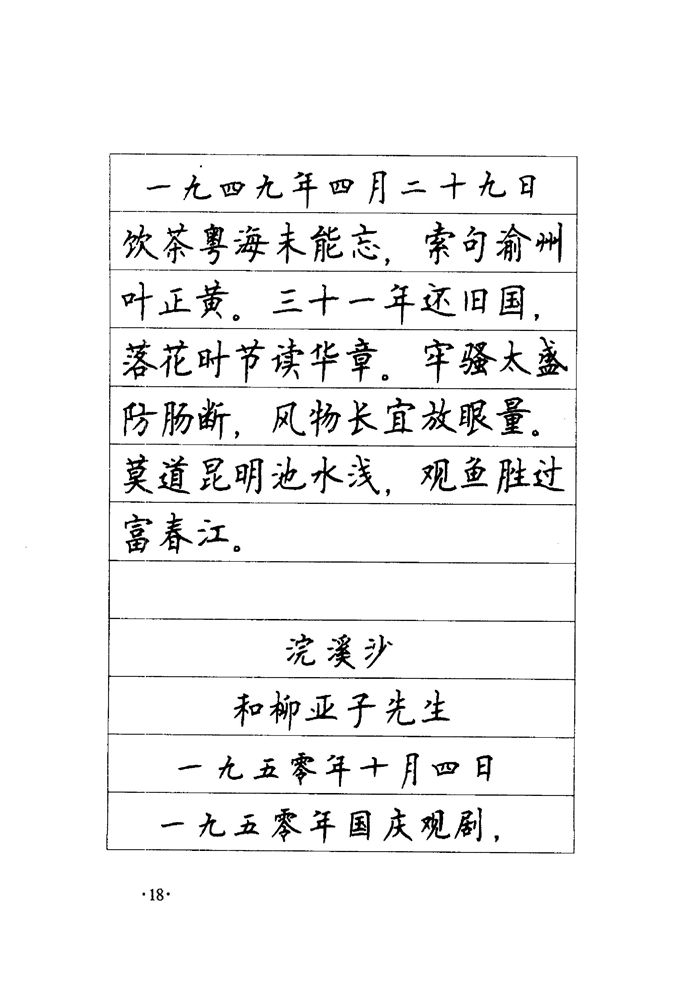 一九四九年四月二十九日
饮茶粤海未能忘，索句渝州
叶正黄。三十一年还旧国，
落花时节读华章。牢骚太盛
防肠断，风物长宜放眼量。
莫道昆明池水浅，观鱼胜过
富春江。
浣溪沙
和柳亚子先生
一九五零年十月四日
一九五零年国庆观剧，
·18·